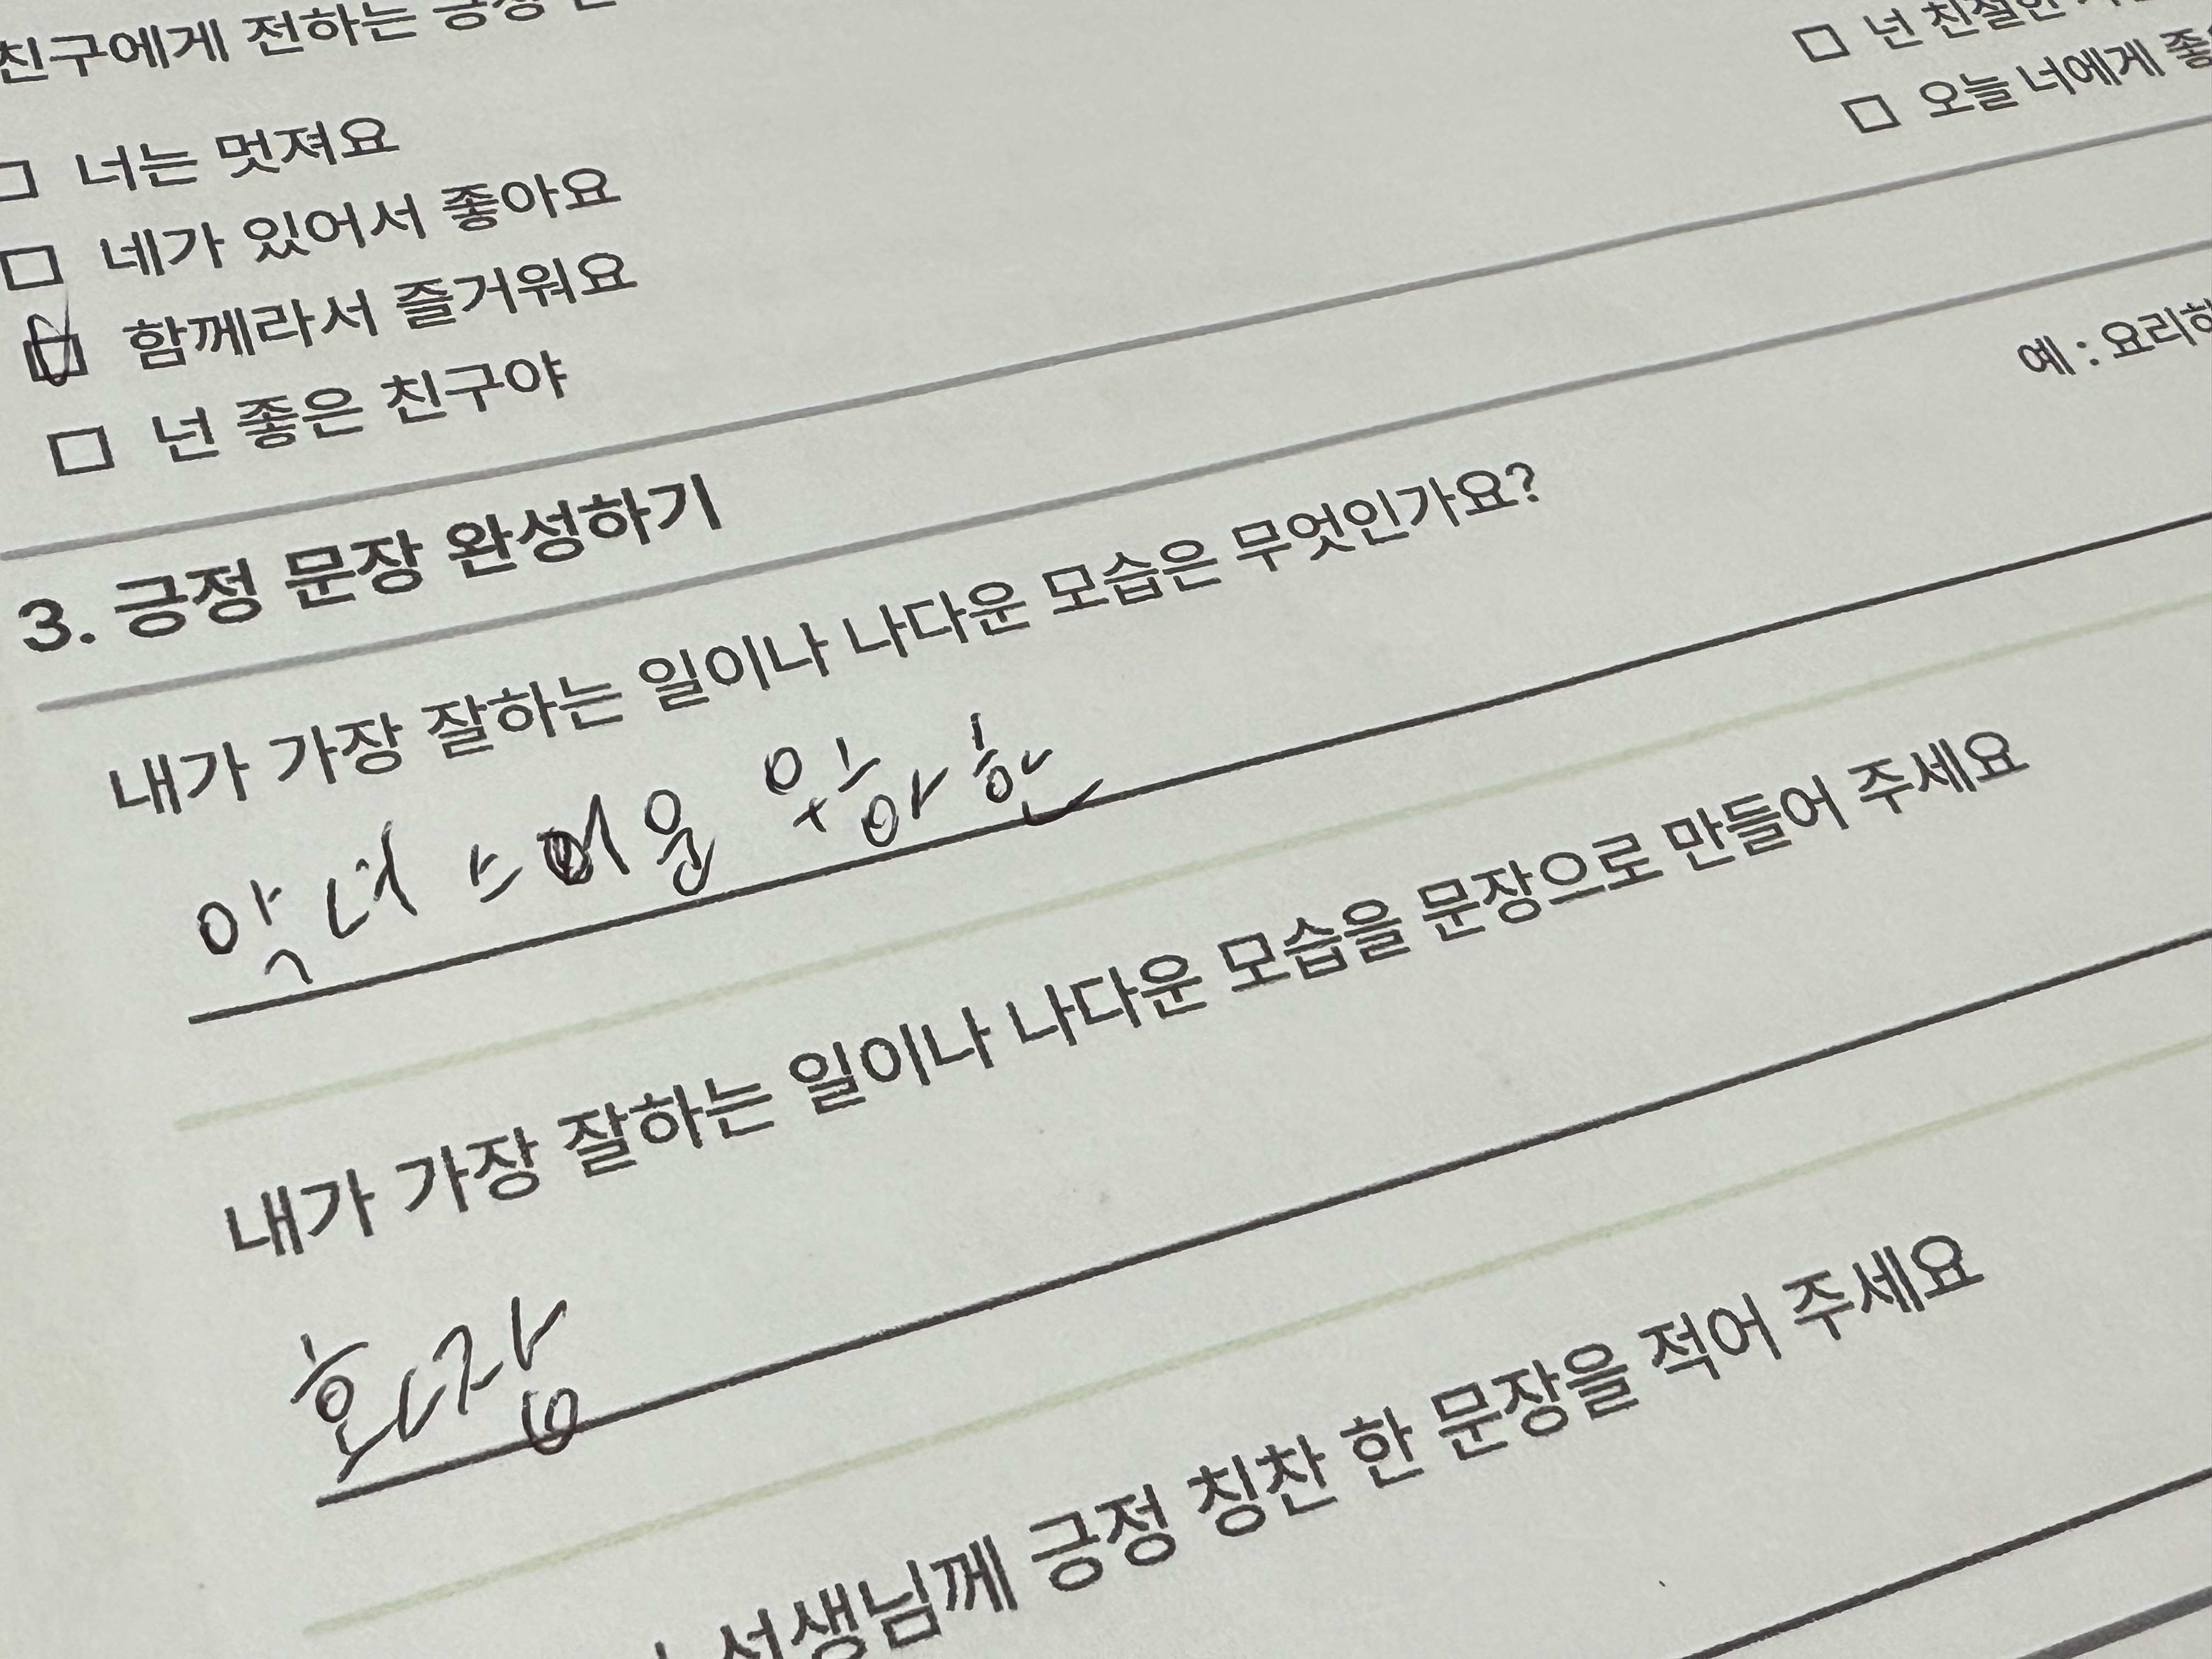 친구에게 전하는 긍정
너는 멋져요
네가 있어서 좋아요
함께라서 즐거워요
넌 좋은 친구야
넌 친절한
오늘 너에게
3. 긍정 문장 완성하기
예 : 요리하
내가 가장 잘하는 일이나 나다운 모습은 무엇인가요?
내가 가장 잘하는 일이나 나다운 모습을 문장으로 만들어 주세요
화장
선생님께 긍정 칭찬 한 문장을 적어 주세요